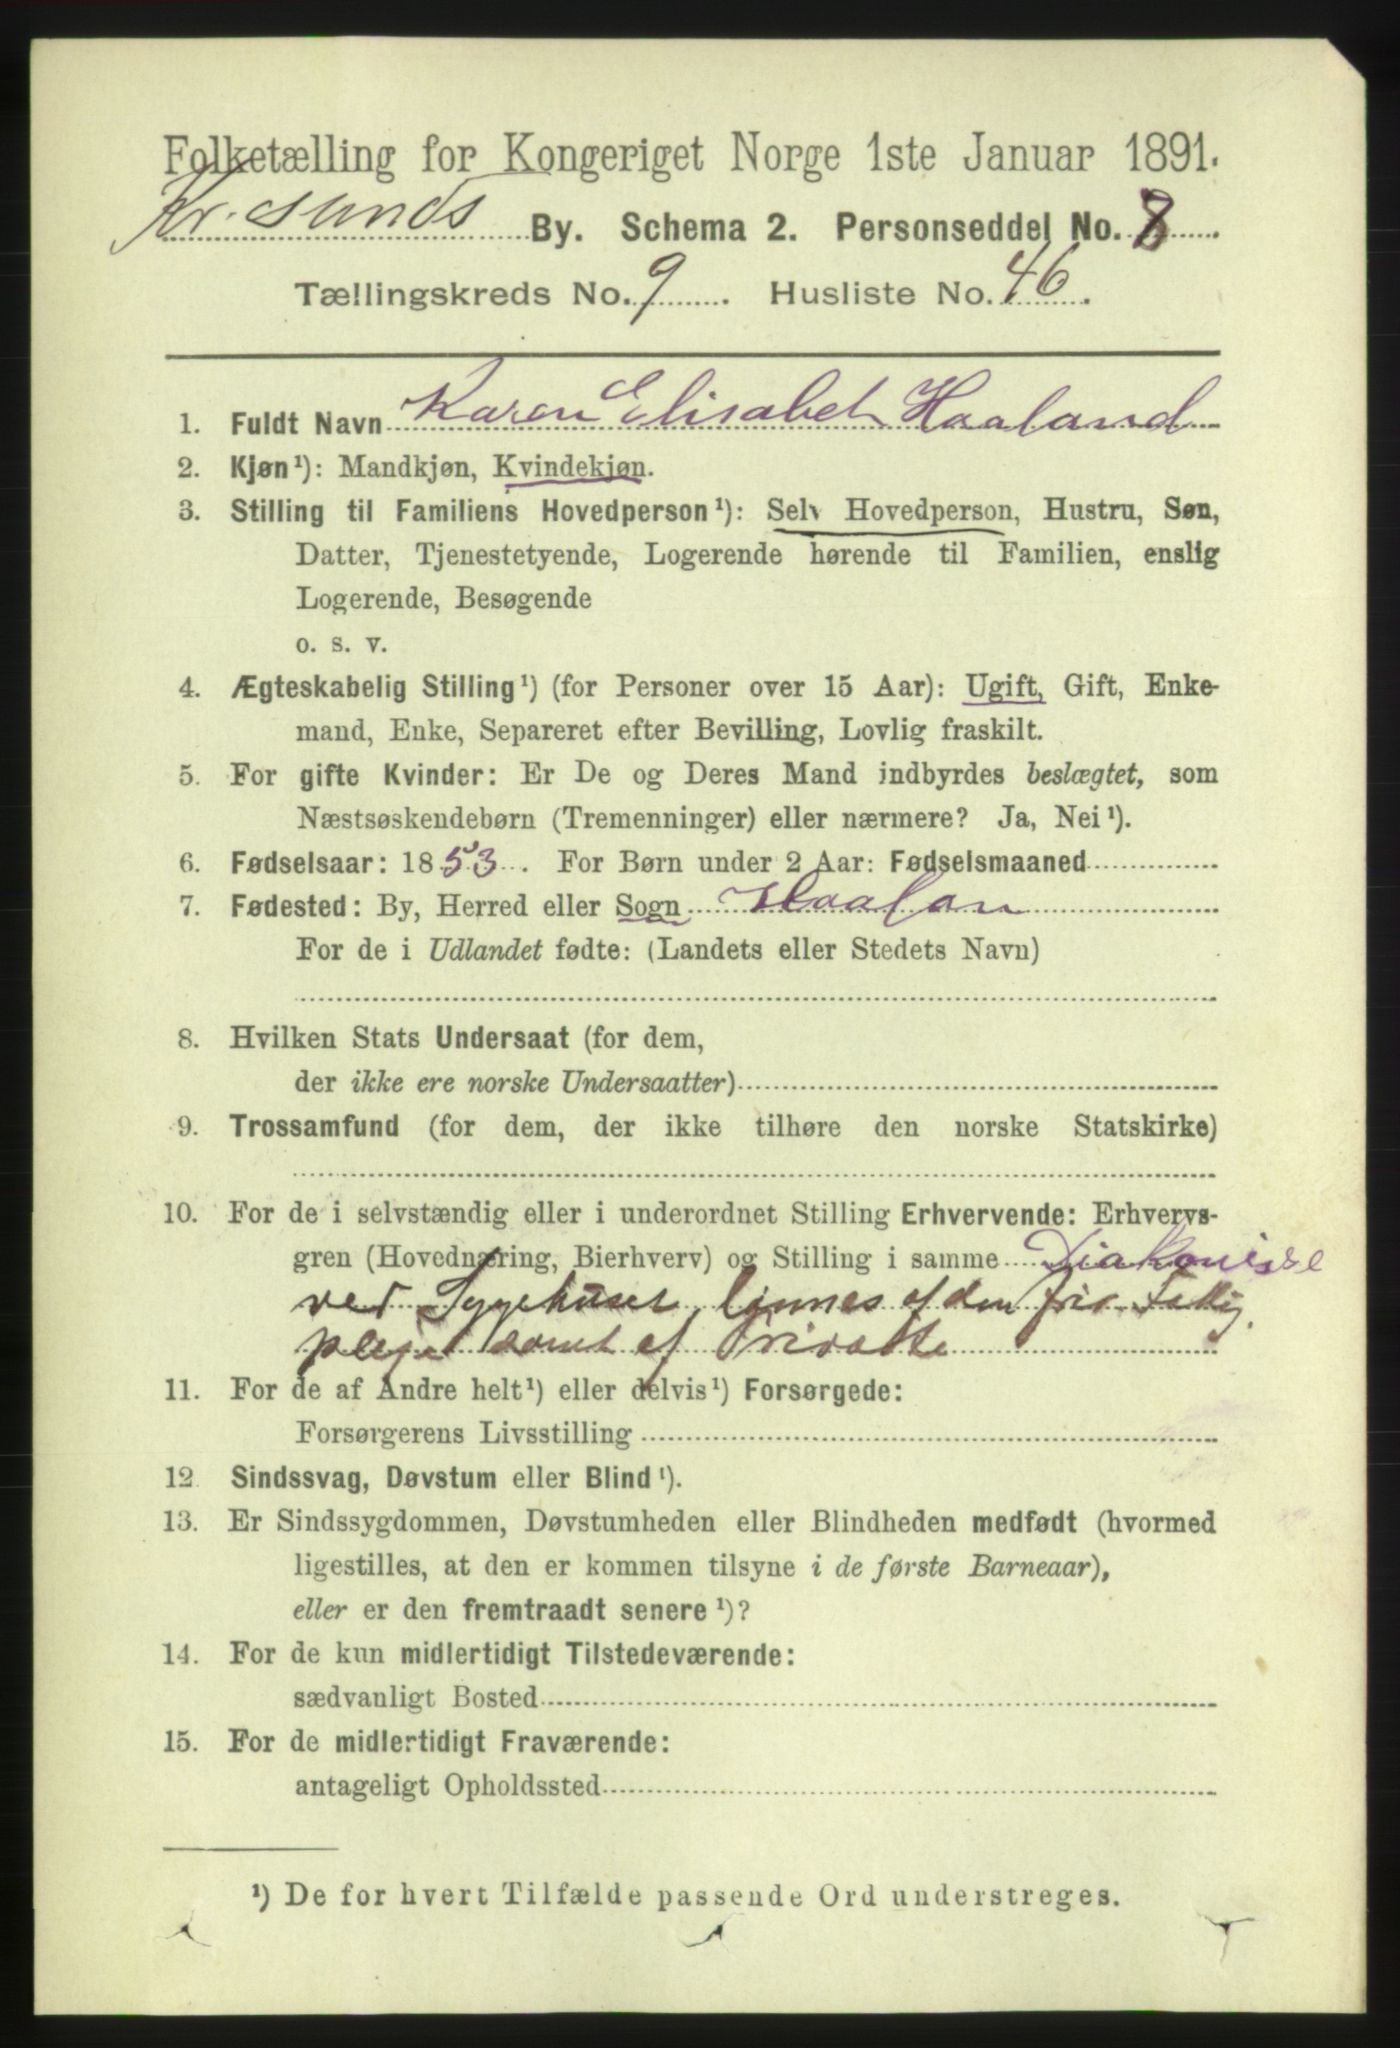 Folketælling for Kongeriget Norge 1ste Januar 1891.
Kr. sunds By. Schema 2. Personseddel No. 8
Tællingskreds No. 9. Husliste No. 46.
1. Fuldt Navn Karen Elisabet Haaland
2. Kjøn¹): Mandkjøn, Kvindekjøn.
3. Stilling til Familiens Hovedperson¹): Selv Hovedperson, Hustru, Søn,
Datter, Tjenestetyende, Logerende hørende til Familien, enslig
Logerende, Besøgende
o. s. v.
4. Ægteskabelig Stilling¹) (for Personer over 15 Aar): Ugift, Gift, Enke-
mand, Enke, Separeret efter Bevilling, Lovlig fraskilt.
5. For gifte Kvinder: Er De og Deres Mand indbyrdes beslægtet, som
Næstsøskendebørn (Tremenninger) eller nærmere? Ja, Nei¹).
6. Fødselsaar: 1853. For Børn under 2 Aar: Fødselsmaaned
7. Fødested: By, Herred eller Sogn Haalan
For de i Udlandet fødte: (Landets eller Stedets Navn)
8. Hvilken Stats Undersaat (for dem,
der ikke ere norske Undersaatter)
9. Trossamfund (for dem, der ikke tilhøre den norske Statskirke)
10. For de i selvstændig eller i underordnet Stilling Erhvervende: Erhvervs-
gren (Hovednæring, Bierhverv) og Stilling i samme Diakonisse
ved Sygehuset, lønnes af den frie Fattig
pleje samt af Private
11. For de af Andre helt¹) eller delvis¹) Forsørgede:
Forsørgerens Livsstilling
12. Sindssvag, Døvstum eller Blind¹).
13. Er Sindssygdommen, Døvstumheden eller Blindheden medfødt (hvormed
ligestilles, at den er kommen tilsyne i de første Barneaar),
eller er den fremtraadt senere¹)?
14. For de kun midlertidigt Tilstedeværende:
sædvanligt Bosted
15. For de midlertidigt Fraværende:
antageligt Opholdssted
¹) De for hvert Tilfælde passende Ord understreges.